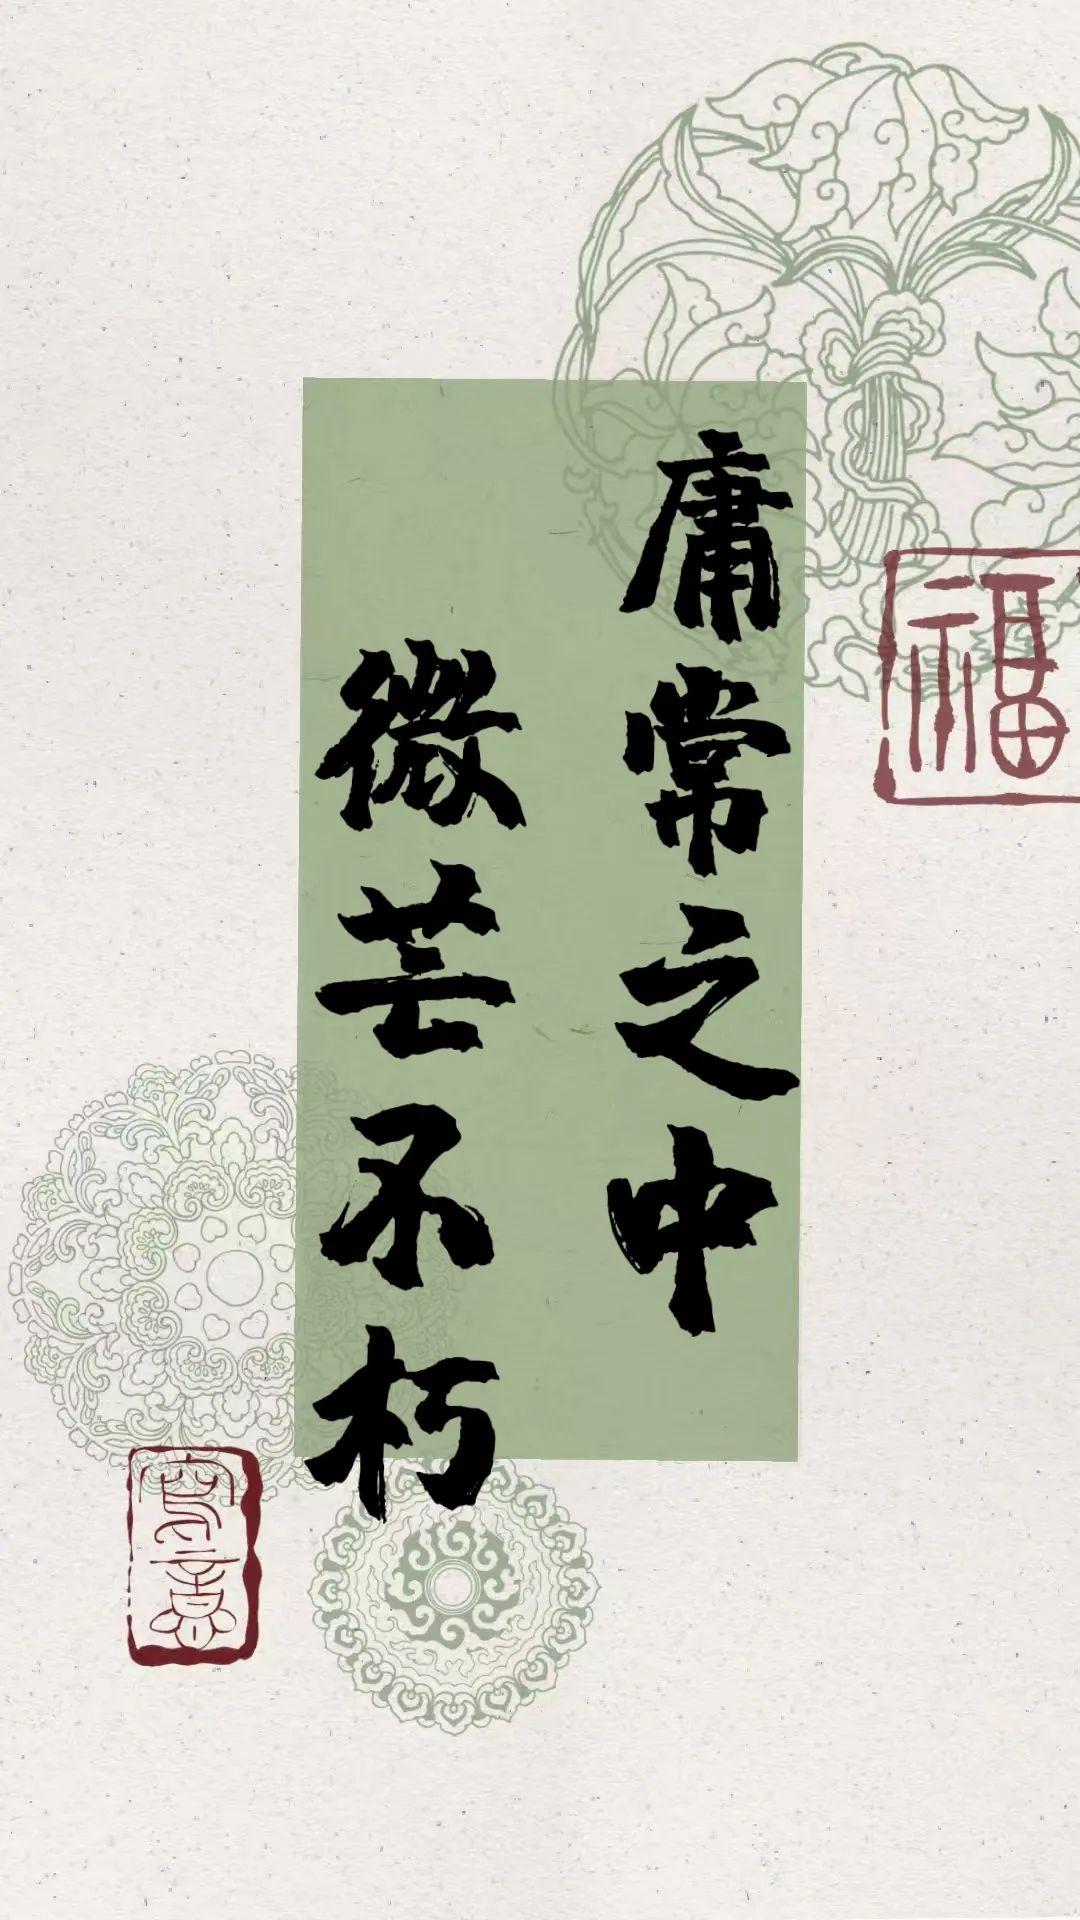 庸常之中
微芒不朽
福
写意